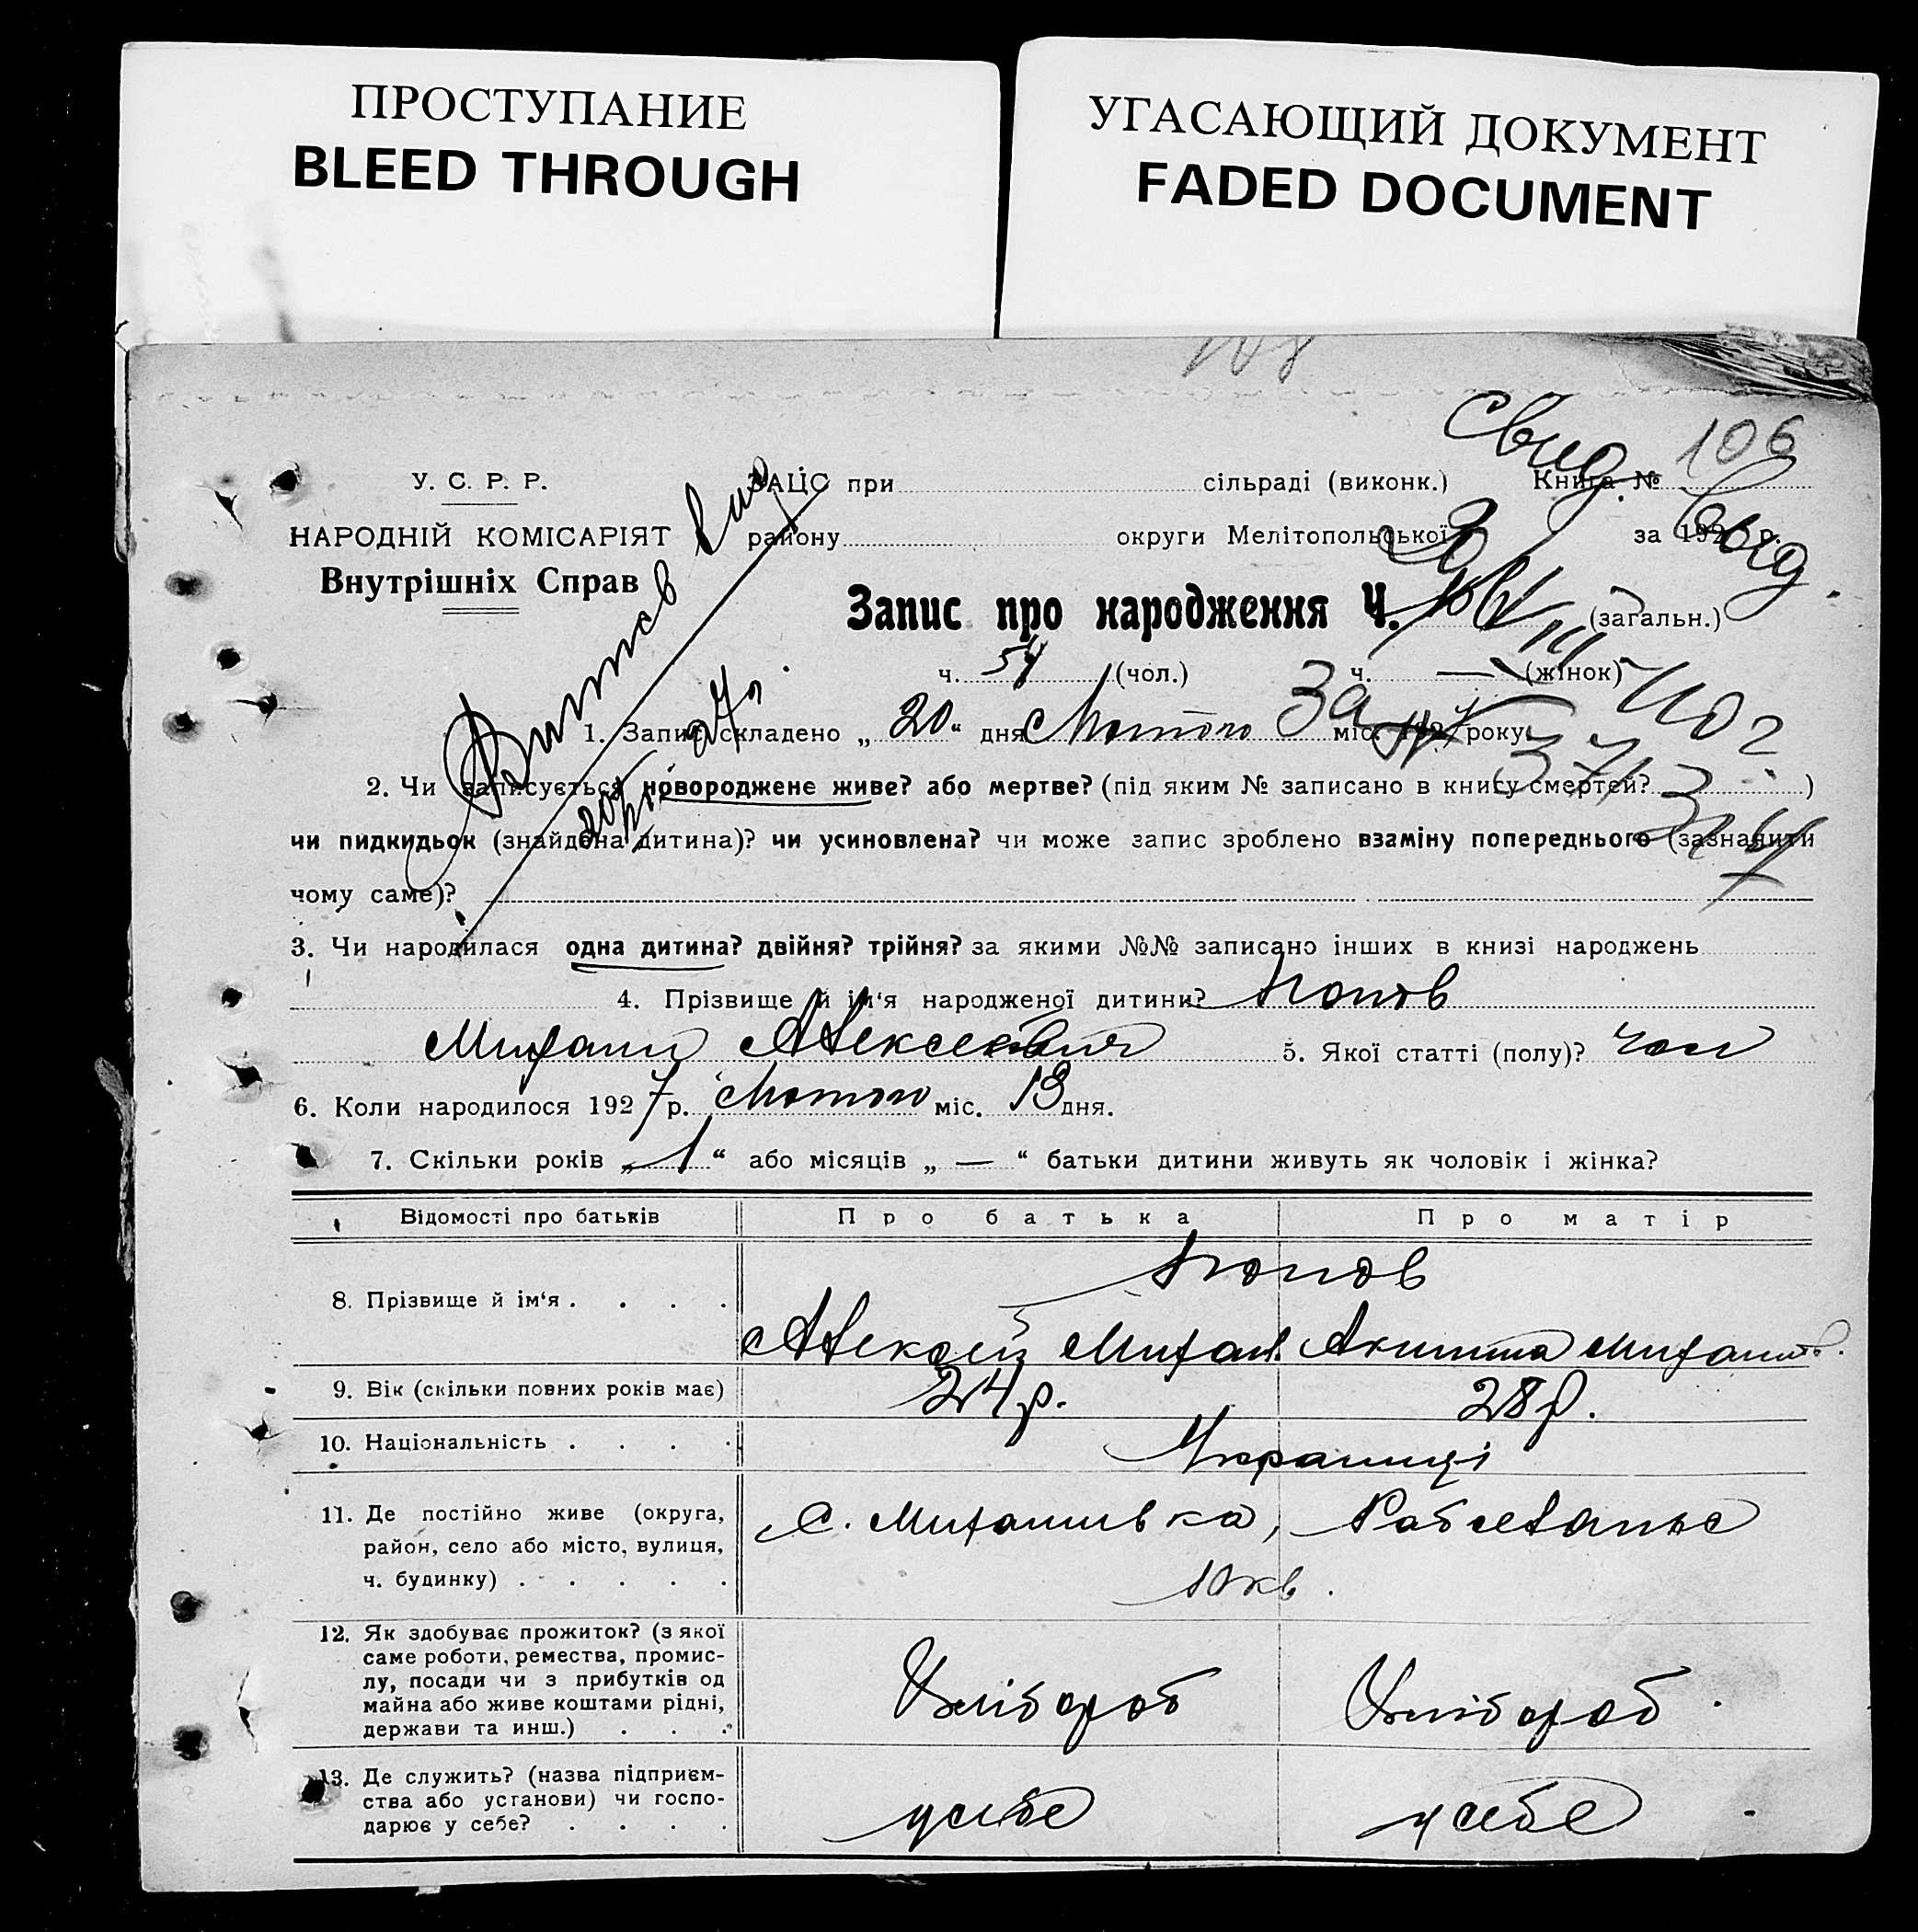 ПРОСТУПАНИЕ
BLEED THROUGH
УГАСАЮЩИЙ ДОКУМЕНТ
FADED DOCUMENT
108
Свид. 106
У. С. Р. Р.
ЗАЦС при сільраді (виконк.) Книга №
НАРОДНІЙ КОМІСАРІЯТ
району округи Мелітопольської за 192 р.
Свид.
Внутрішніх Справ
Запис про народження Ч. (загальн.)
ч. 54 (чол.) ч. — (жінок)
1. Запис складено „ 20 “ дня Лютого міс. 1927 року.
2. Чи записується новороджене живе? або мертве? (під яким № записано в книгу смертей? )
чи пидкидьок (знайдена дитина)? чи усиновлена? чи може запис зроблено взаміну попереднього (зазначити
чому саме)?
3. Чи народилася одна дитина? двійня? трійня? за якими №№ записано інших в книзі народжень
4. Прізвище й ім‘я народженої дитини? Попов
Михаил Алексеевич 5. Якої статті (полу)? чол
6. Коли народилося 1927 р. Лютого міс. 13 дня.
7. Скільки років „ 1 “ або місяців „ — “ батьки дитини живуть як чоловік і жінка?
Відомості про батьків Про батька Про матір
Попов
8. Прізвище й ім‘я . . . .
Алексей Михаил. Акилина Михаилов.
9. Вік (скільки повних років має) 24 р. 28 р.
10. Національність . . . . Украинці
11. Де постійно живе (округа,
район, село або місто, вулиця,
ч. будинку) . . . . .
с. Михайлівка,
10 кв.
12. Як здобуває прожиток? (з якої
саме роботи, ремества, промис-
лу, посади чи з прибутків од
майна або живе коштами рідні,
держави та инш.) . . .
Хлібороб Хлібороб
13. Де служить? (назва підприєм-
ства або установи) чи госпо-
дарює у себе? . . . .
у себе у себе